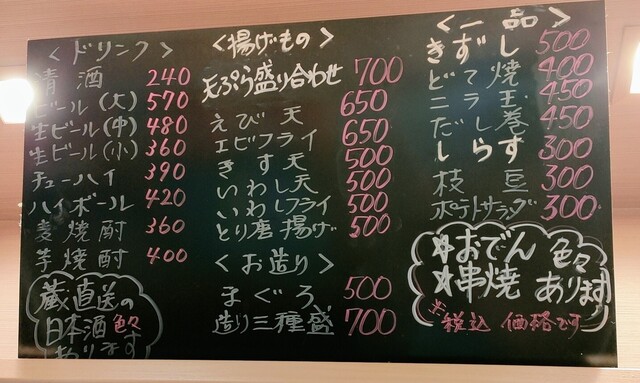 <ドリンク>
清酒 240
ビール(大) 570
生ビール(中) 480
生ビール(小) 360
チューハイ 390
ハイボール 420
麦焼酎 360
芋焼酎 400
蔵直送の
日本酒色々
あります
<揚げもの>
天ぷら盛り合わせ 700
えび天 650
エビフライ 650
きす天 500
いわし天 500
いわしフライ 500
とり唐揚げ 500
<お造り>
まぐろ 500
造り三種盛 700
<一品>
きずし 500
どて焼 400
ニラ玉 450
だし巻 450
しらす 300
枝豆 300
ポテトサラダ 300
*おでん 色々
*串焼 あります
※税込 価格です